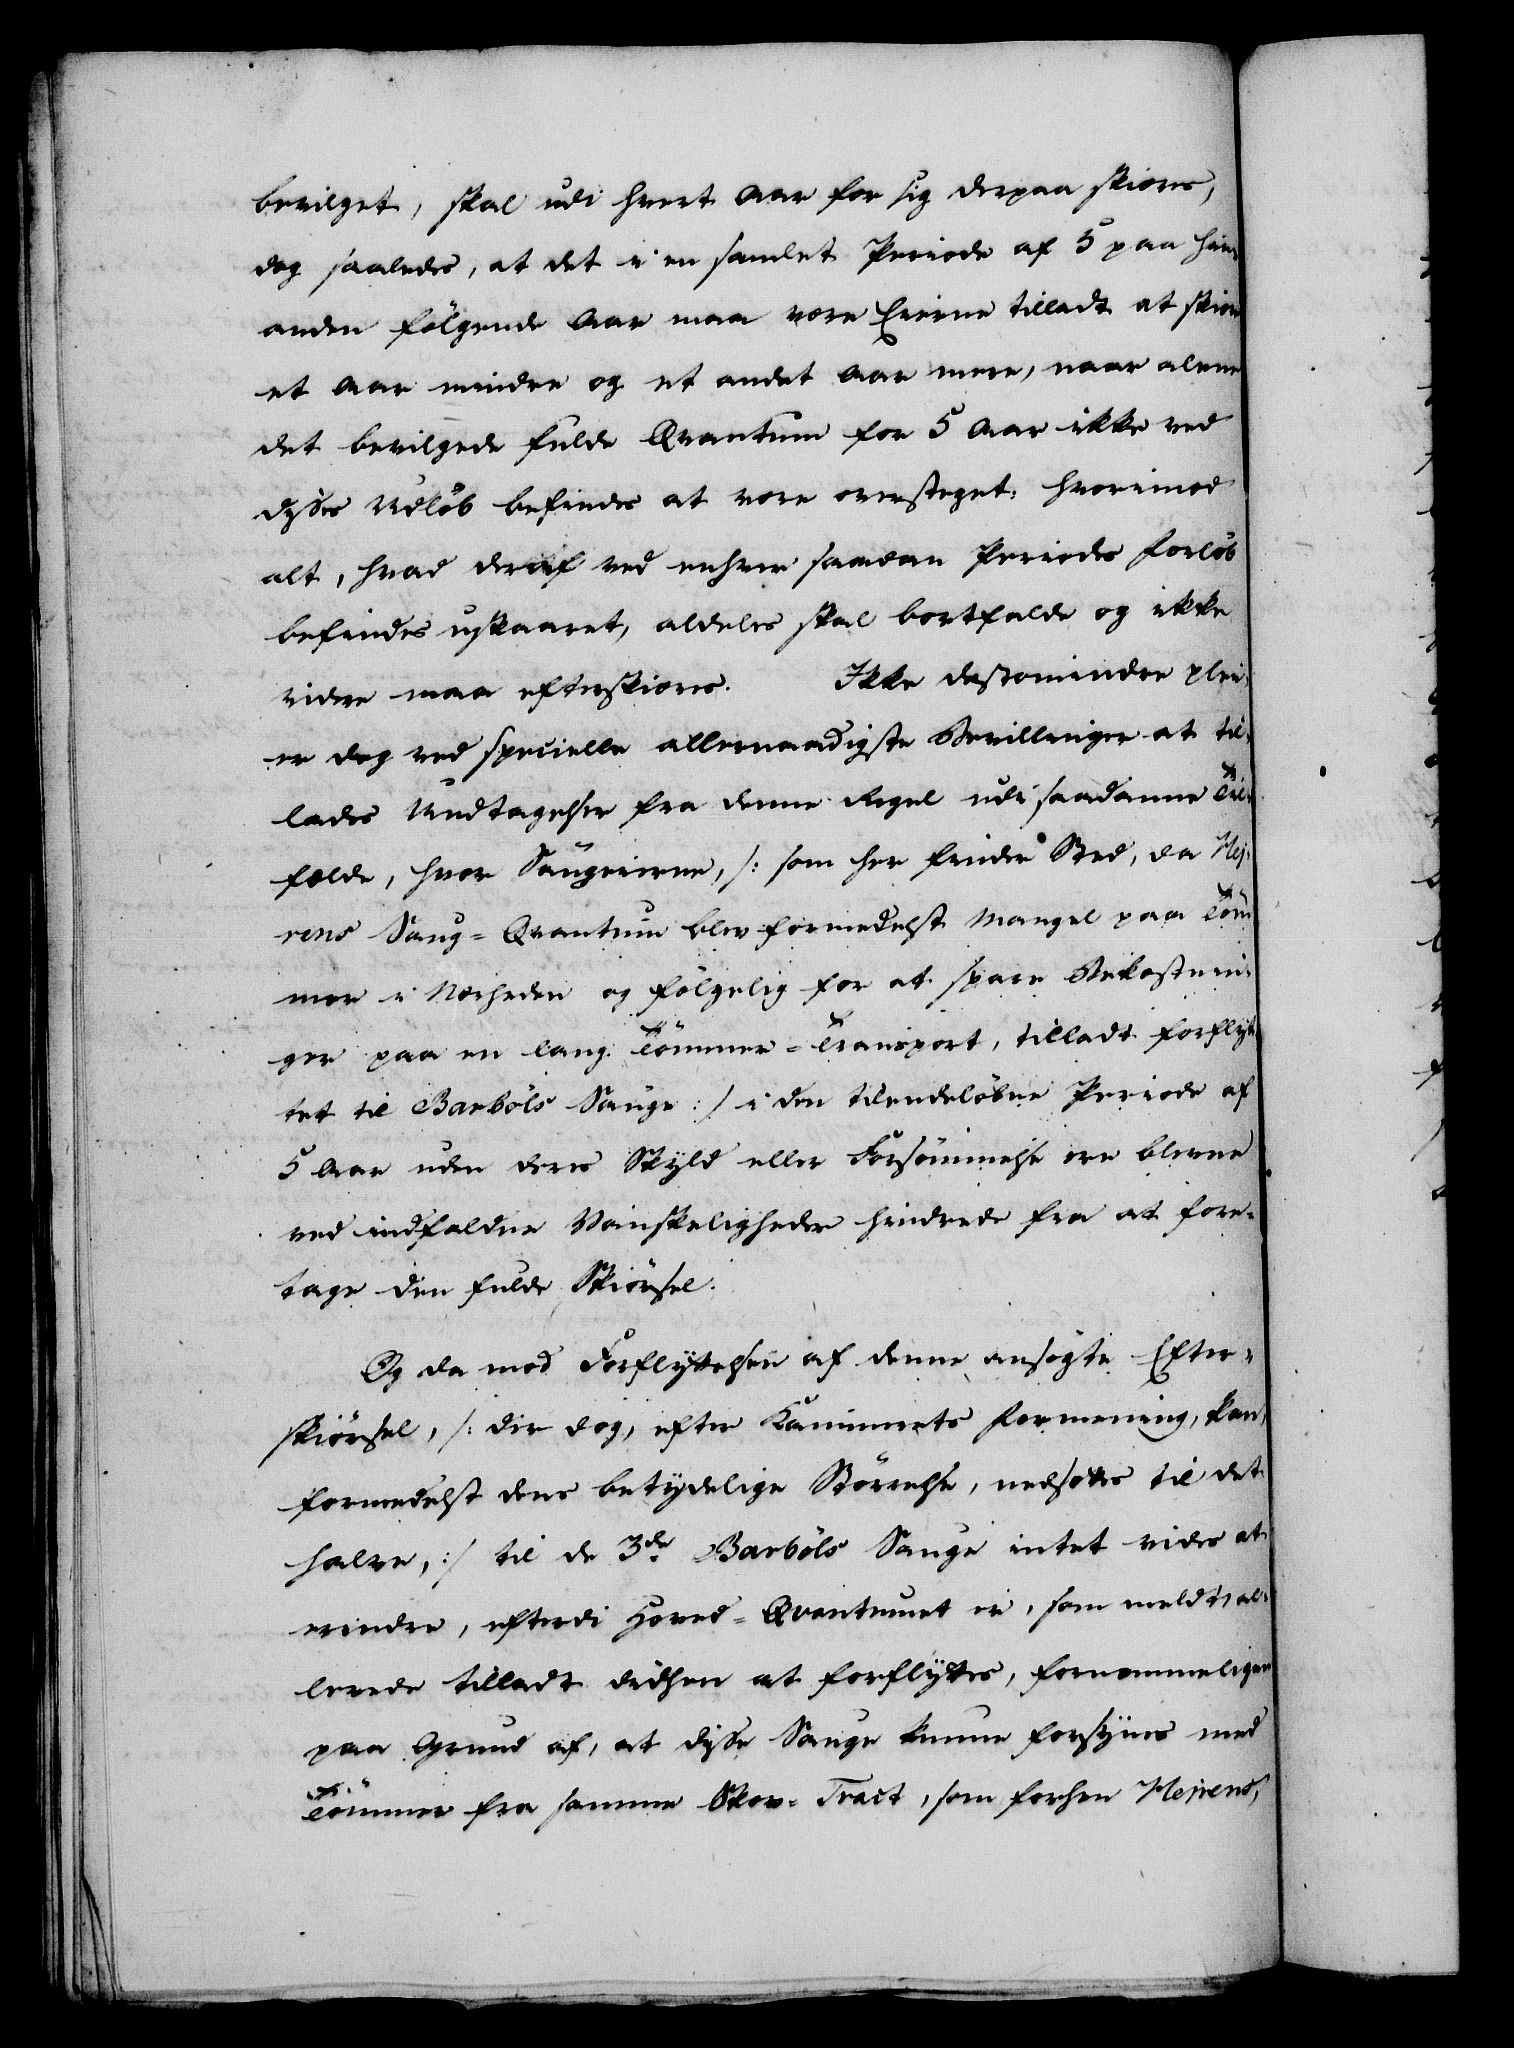 bevilget, skal udi hvert Aar for sig derpaa skiæres,
dog saaledes, at det i en samlet Periode af 5 paa hin¬
anden følgende Aar maa være Eierne tilladt at skiære
et Aar mindre og et andet Aar mere, naar alene
det bevilgede fulde Qvantum for 5 Aar ikke ved
disses Udløb befindes at være oversteget: hvorimod
alt, hvad deraf ved enhver saadan Periodes Forløb
befindes uskaaret, aldeles skal bortfalde og ikke
videre maa efterskiæres. Ikke destomindre plei¬
er dog ved specielle allernaadigste Bevillinger at til¬
lades Undtagelser fra denne Regel udi saadanne Til¬
fælde, hvor Saugeierne, /: som her finder Sted, da Hej¬
rens Saug-Qvantum blev formedelst Mangel paa Tøm¬
mer i Nærheden og følgelig for at spare Bekostnin¬
ger paa en lang Tømmer-Transport, tilladt forflyt¬
tet til Barbøls Sauge :/ i den tilendeløbne Periode af
5 Aar uden deres Skyld eller Forsømmelse ere blevne
ved indfaldne Vanskeligheder hindrede fra at fore¬
tage den fulde Skiørsel.
Og da mod Forflyttelsen af denne ansøgte Efter¬
skiørsel, /: der dog, efter Kammerets Formening, kan,
formedelst dens betydelige Størrelse, nedsættes til det
halve, :/ til de 3de Barbøls Sauge intet vides at
erindre, efterdi Hoved-Qvantumet er, som meldt, al¬
lerede tilladt didhen at forflyttes, fornemmeligen
paa Grund af, at disse Sauge kunne forsynes med
Tømmer fra samme Skov-Tract, som forhen Hejrens,